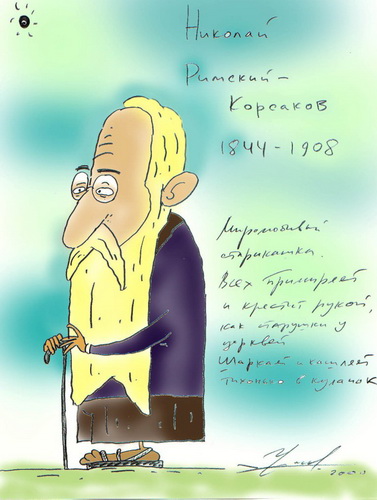 Николай
Римский-
Корсаков
1844-1908
Миролюбивый
старикашка.
Всех примиряет
и крестит рукой,
как старушки у
церквей
Шаркая и кашляя
тихонько в кулачок